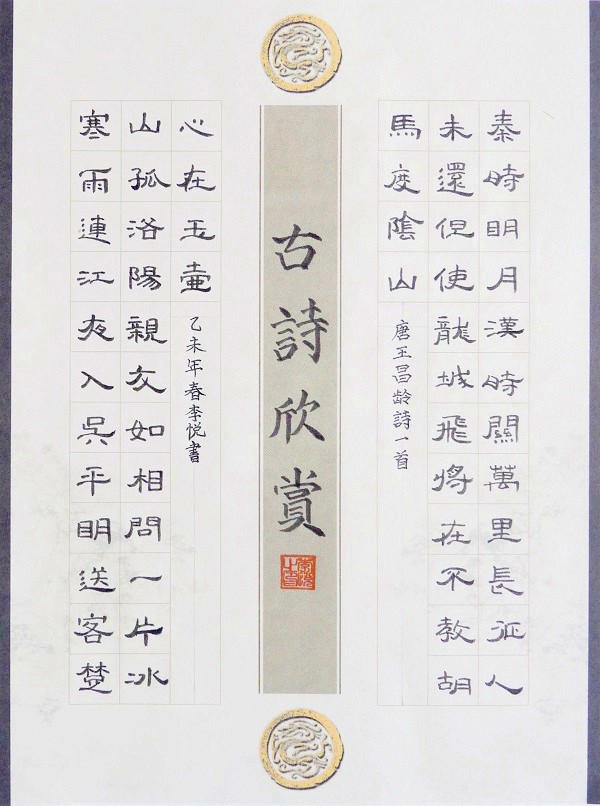 秦時明月漢時關萬里長征人
未還但使龍城飛將在不教胡
馬度陰山
唐王昌龄詩一首
古詩欣賞
寒雨連江夜入吳平明送客楚
山孤洛陽親友如相問一片冰
心在玉壺
乙未年春李悦書